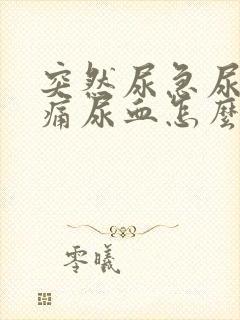 突然尿急尿
痛尿血怎麼
零曦